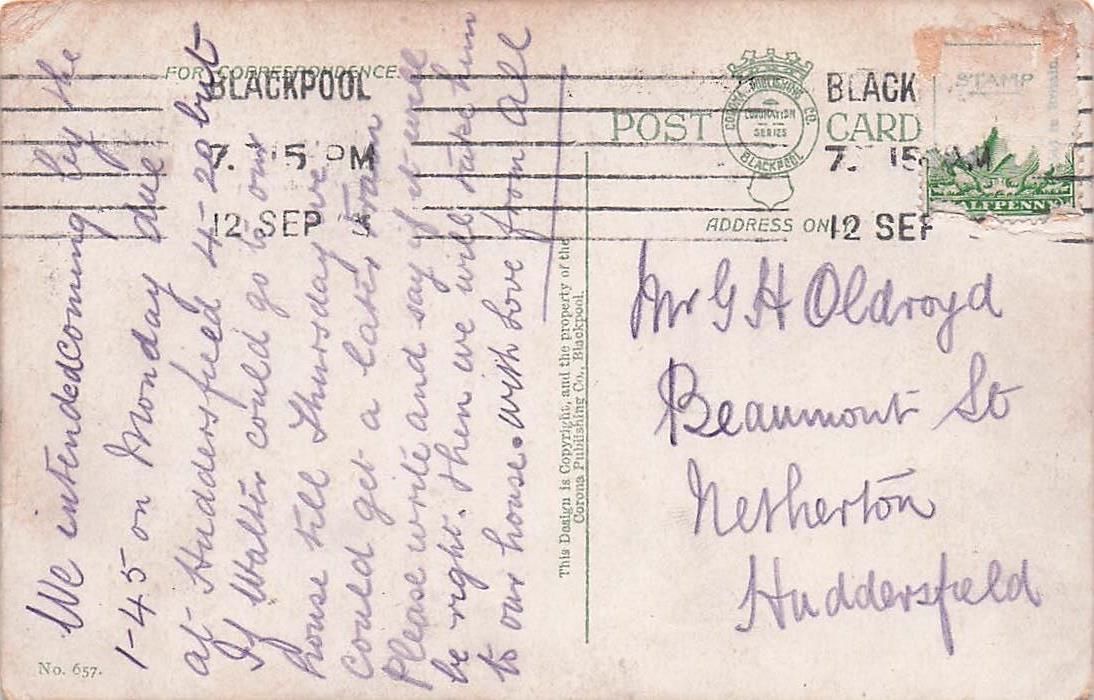 FOR CORRESPONDENCE.
BLACKPOOL
7. 15 PM
12 SEP
POST CARD
CORONA PUBLISHING CO.
CORONATION
SERIES
BLACKPOOL
BLACK
7. 15
12 SEP
STAMP
ALFPENNY
ADDRESS ONLY
We intended coming by the
1-45 on Monday due
at Huddersfield 4-20 but
If Walter could go to our
house till Thursday we
could get a later train
Please write and say if it will
be right. then we will take him
to our house. With Love from All
This Design is Copyright, and the property of the
Corona Publishing Co., Blackpool.
Mr G H Oldroyd
Beaumont St
Netherton
Huddersfield
No. 657.